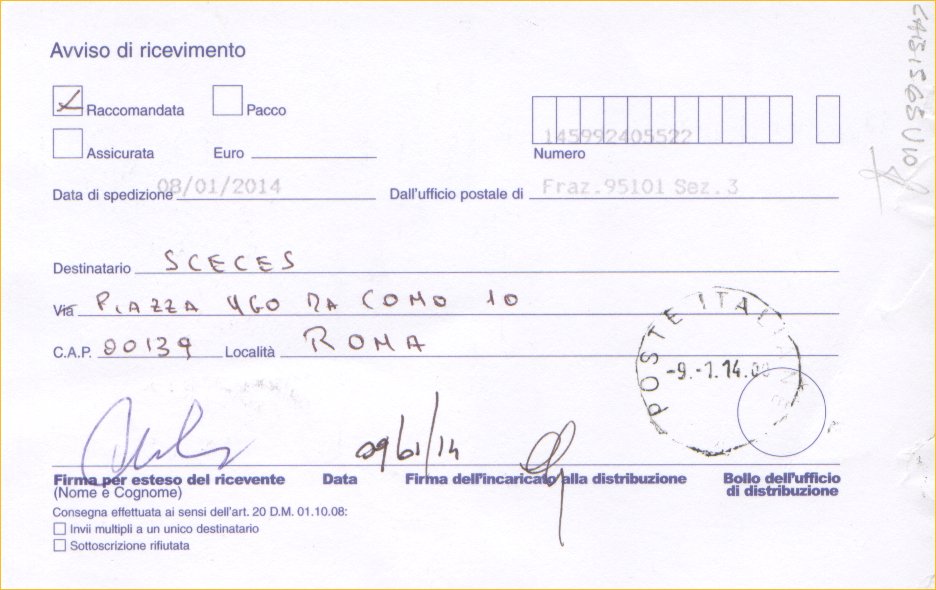 Avviso di ricevimento
Raccomandata Pacco
Assicurata Euro
145992405522
Numero
Data di spedizione 08/01/2014 Dall'ufficio postale di Fraz.95101 Sez.3
Destinatario SCECES
Via PIAZZA UGO DA COMO 10
C.A.P. 00139 Località ROMA
POSTE ITAL
-9.-1.14.
09/01/14
Firma per esteso del ricevente Data Firma dell'incaricato alla distribuzione Bollo dell'ufficio
(Nome e Cognome) di distribuzione
Consegna effettuata ai sensi dell'art. 20 D.M. 01.10.08:
Invii multipli a un unico destinatario
Sottoscrizione rifiutata